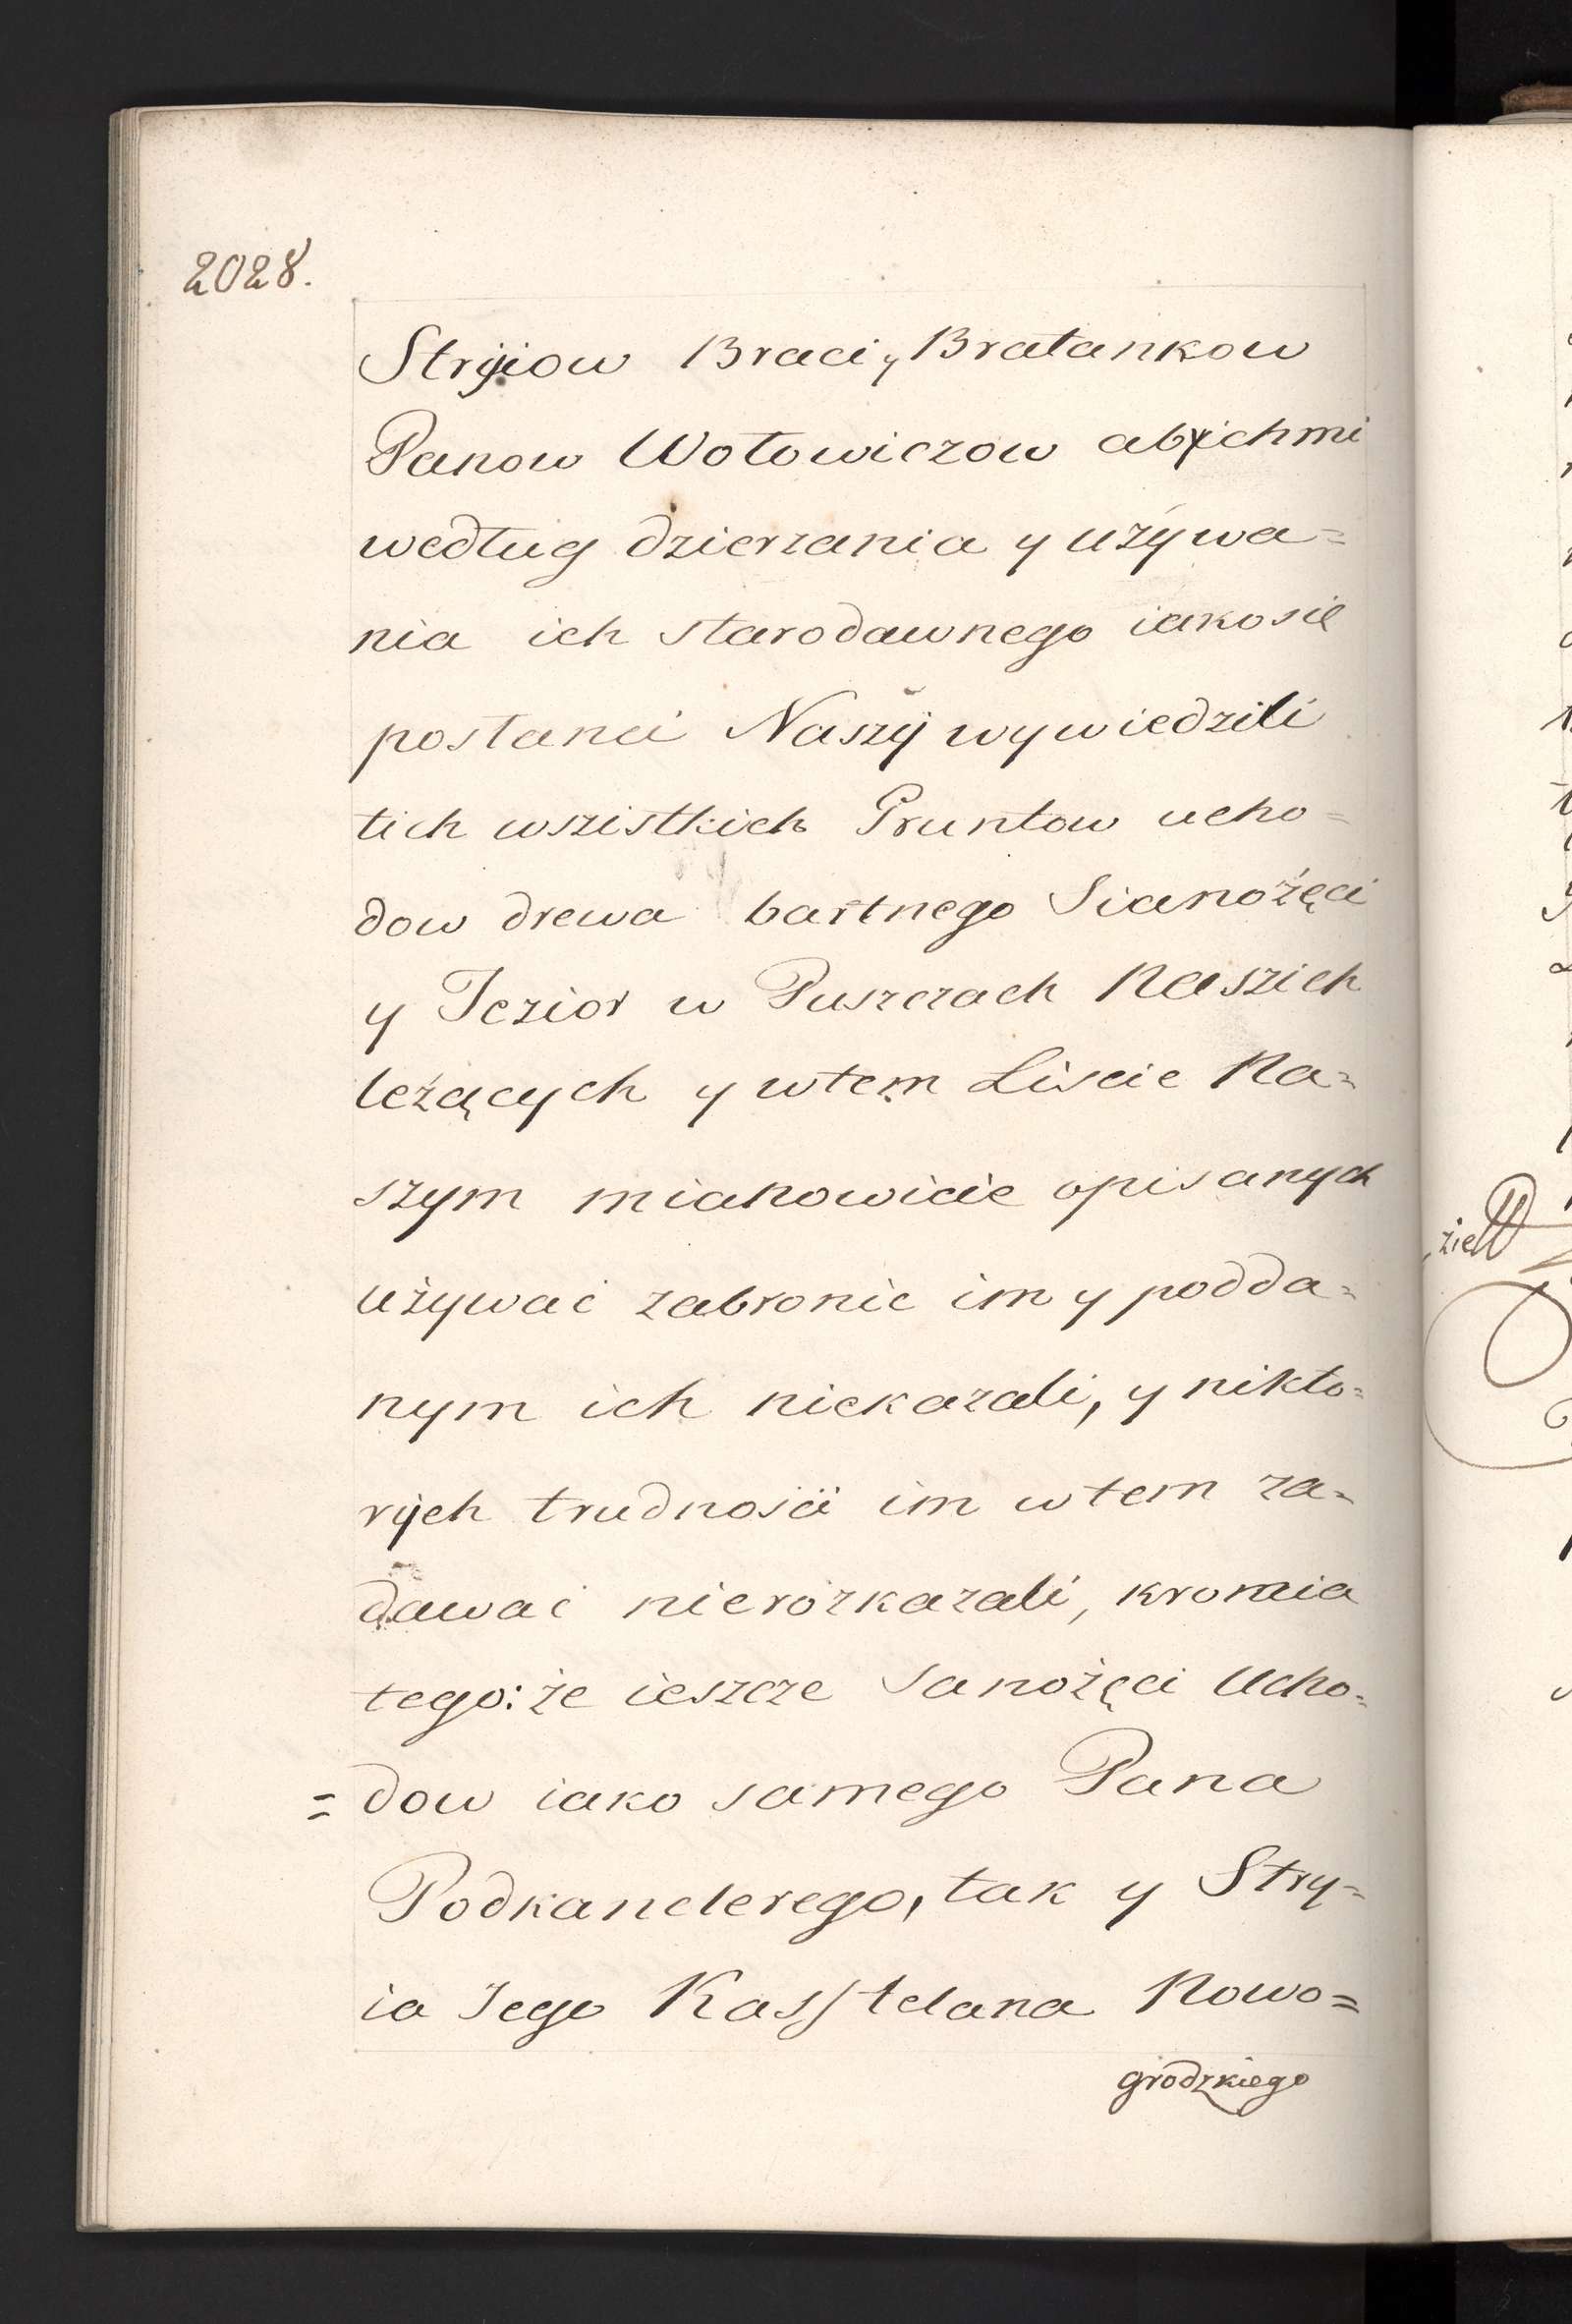 2028.
Stryiow Braci y Bratankow
Panow Wołowiczow abyichmi
według dzierzania y używa=
nia ich starodawnego iako sie
postanci Naszÿ wywiedzili
tich wszistkich Gruntow ucho=
dow drewa bartnego Sianożęci
y Jezior w Puszczach Naszich
leżących y wtem Liscie Na=
szym mianowicie opisanych
używac zabronic im y podda=
nym ich niekazali, y nikto=
rÿch trudnosci im w tem za=
dawac nierozkazali, kromia
tego: że ieszcze Sanożęci Ucho=
=dow iako samego Pana
Podkanclerego, tak y Stry=
ia Jego Kasstelana Nowo=
grodzkiego